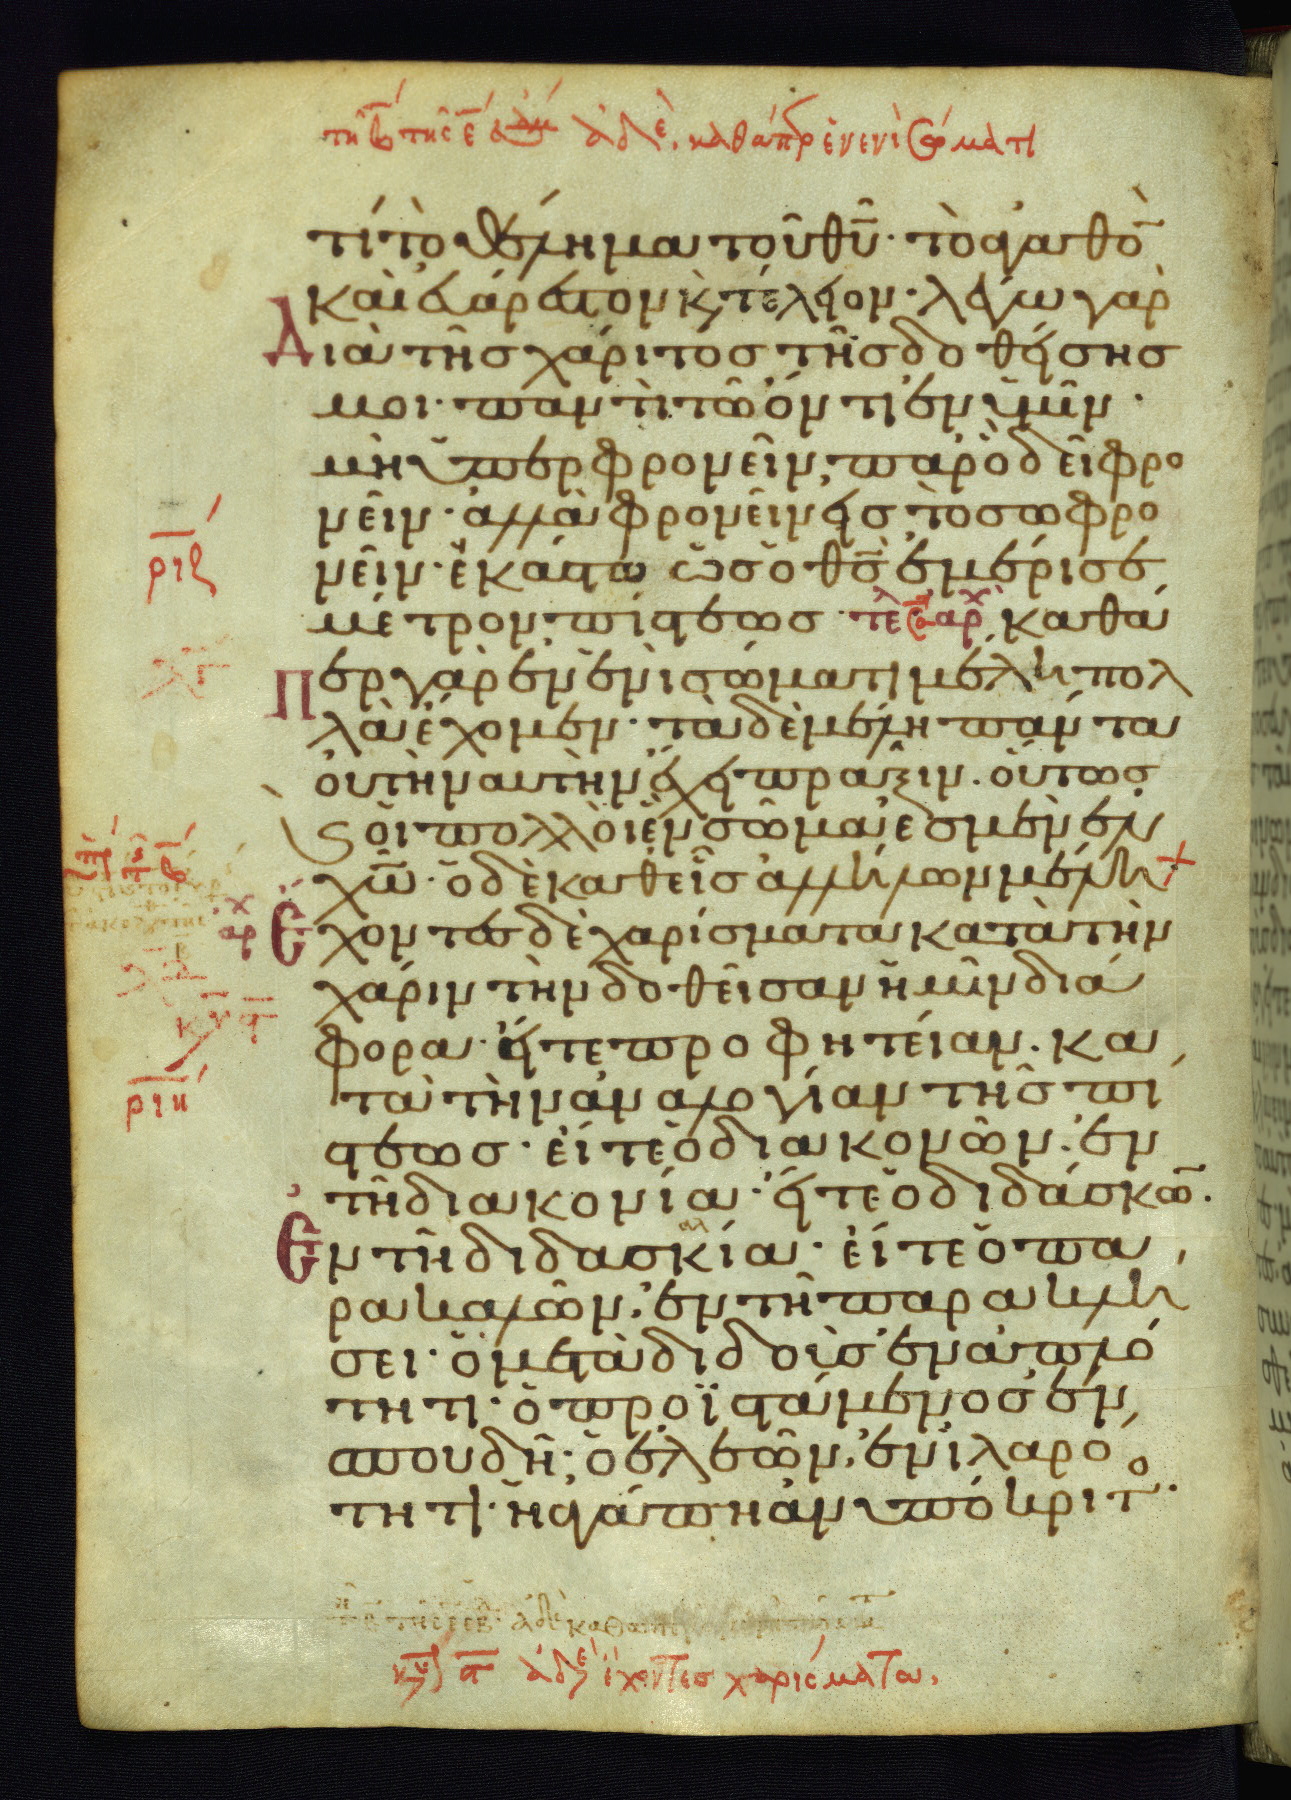 τῆ β τῆς ε ἀδε. καθάπρ ἐν ἑνὶ σώματι
τί τὸ θέλημα τοῦ θῦ· τὸ ἀγαθὸ
καὶ εὐάρεστον κ τέλειον· λέγω γὰρ
Διὰ τῆς χάριτος τῆς δοθείσης
μοι· παντὶ τῶ ὄντι ἐν ὑμῖν·
μὴ ὑπερφρονεῖν, παρ' ὃ δεῖ φρο
νεῖν· ἀλλὰ φρονεῖν εἰς τὸ σωφρο
ριζ
νεῖν· ἑκάστω ὡς ὁ θς ἐμέρισε
μέτρον πίστεως· τελ αρχ καθά
Περ γὰρ ἐν ἑνὶ σώματι μέλη πολ
λὰ ἔχομεν· τὰ δὲ μέλη πάντα
οὐ τὴν αυτὴν ἔχει πραξιν. οὕτως
οἱ πολλοὶ ἓν σῶμα ἐσμὲν ἐν
χῶ· ὁ δὲ καθεῖς ἀλλήλων μέλη
αρχ
Ἔχοντες δὲ χαρίσματα κατὰ τὴν
χάριν τὴν δοθεῖσαν ἡμῖν διά
φορα· εἴτε προφητείαν. κα
ριη
τὰ τὴν ἀναλογίαν τῆς πί
στεως· εἴτε ὁ διακονῶν. ἐν
τῆ διακονία· εἴτε ὁ διδάσκω.
Ἐν τῆ διδασκαλία· εἴτε ὁ πα
ρακαλῶν, ἐν τῆ παρακλή
σει· ὁ μεταδιδοὺς ἐν ἁπλό
τητι· ὁ προϊστάμενος ἐν
σπουδῆ· ὁ ἐλεῶν, ἐν ἱλαρό
τητι· ἡ ἀγάπη ἀνυπόκριτο·
ἀδε ἔχοντες χαρίσματα,